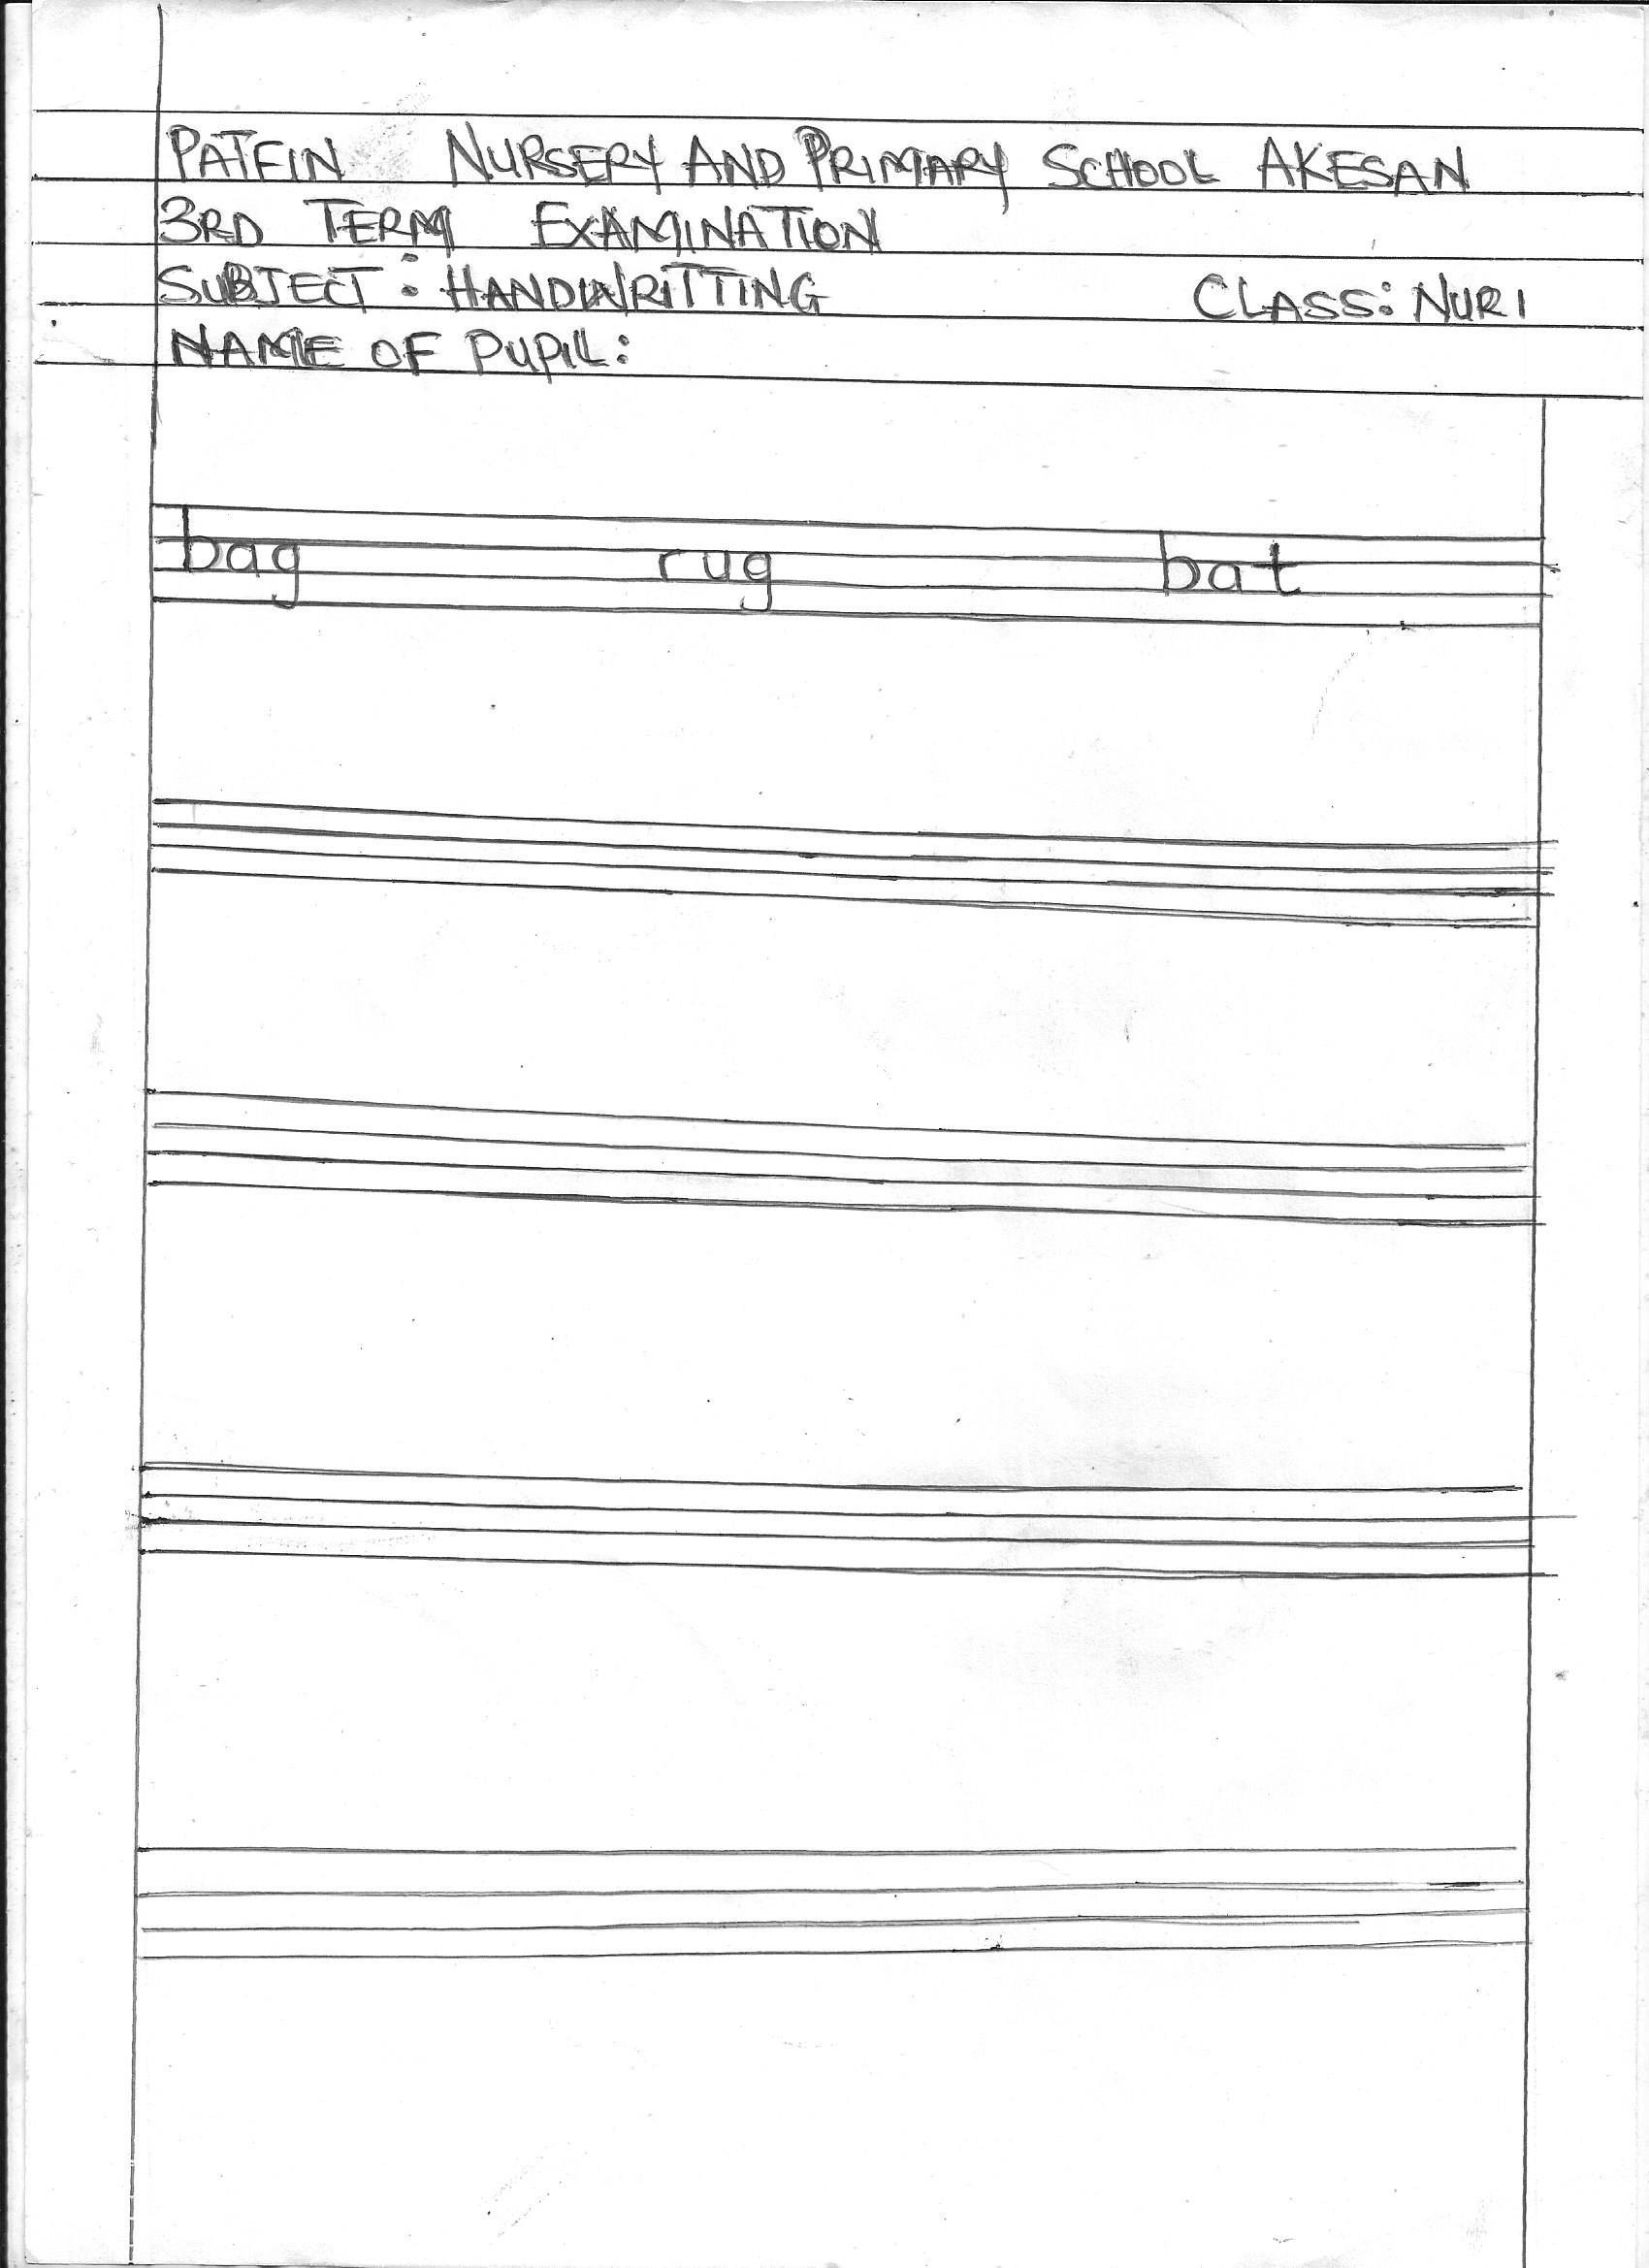 PATFIN NURSERY AND PRIMARY SCHOOL AKESAN
3RD TERM EXAMINATION
SUBJECT: HANDWRITTING CLASS: NUR 1
NAME OF PUPIL:
bag rug bat